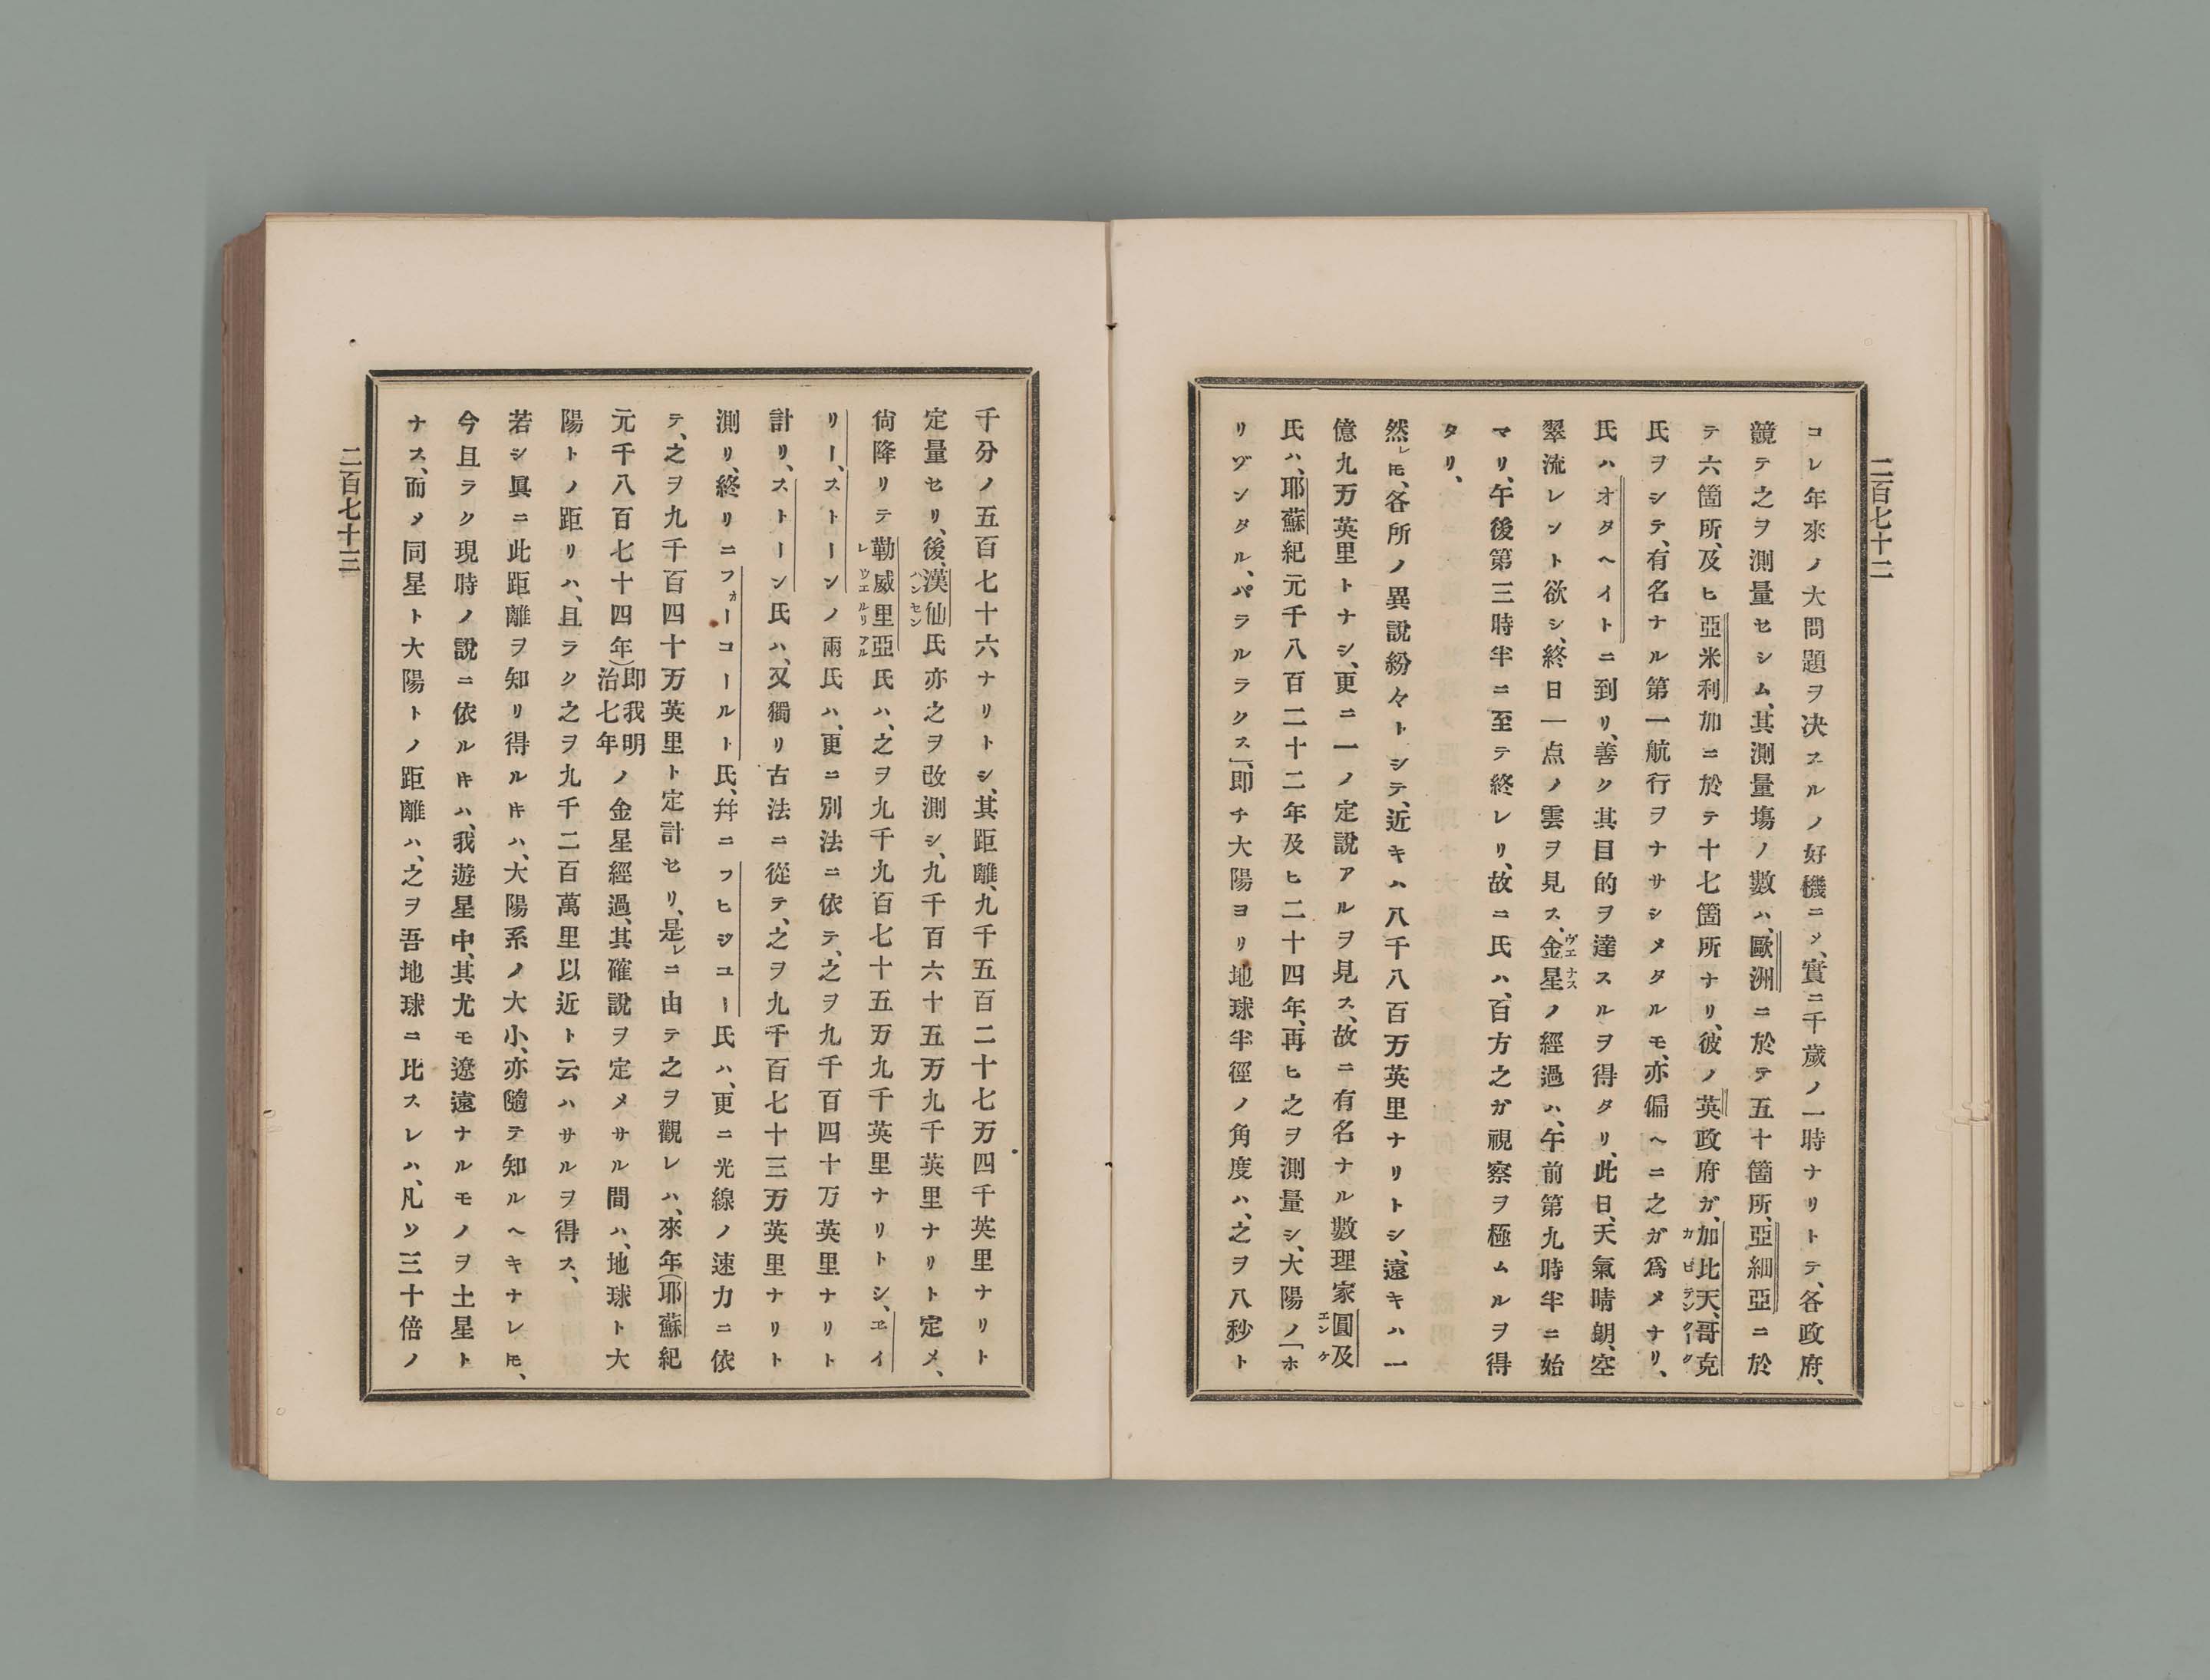 二百七十二
コレ年來ノ大問題ヲ决スルノ好機ニㇱ、實ニ千歲ノ一時ナリトテ、各政府、
競テ之ヲ測量セシム、其測量塲ノ數ハ、歐洲ニ於テ五十箇所、亞細亞ニ於
テ六箇所、及ヒ亞米利加ニ於テ十七箇所ナリ、彼ノ英政府ガ、加比天、哥克
カピテンクーク
氏ヲシテ、有名ナル第一航行ヲナサシメタルモ、亦偏ヘニ之ガ爲メナリ、
氏ハオタヘイトニ到リ、善ク其目的ヲ達スルヲ得タリ、此日、天氣晴朗、空
翠流レント欲シ、終日一点ノ雲ヲ見ス、金星ノ經過ハ、午前第九時半ニ始
ヴエナス
マリ、午後第三時半ニ至テ終レリ、故ニ氏ハ、百方之ガ視察ヲ極ムルヲ得
タリ、
然レ𪜈、各所ノ異說紛々トシテ、近キハ八千八百万英里ナリトシ、遠キハ一
億九万英里トナシ、更ニ一ノ定說アルヲ見ス、故ニ有名ナル數理家圓及
エンケ
氏ハ、耶蘇紀元千八百二十二年及ヒ二十四年、再ヒ之ヲ測量シ、大陽ノ「ホ
リヅンタル、パラルラクス」、即チ大陽ヨリ地球半徑ノ角度ハ、之ヲ八秒ト
千分ノ五百七十六ナリトシ、其距離、九千五百二十七万四千英里ナリト
定量セリ、後、漢仙氏亦之ヲ改測シ、九千百六十五万九千英里ナリト定メ、
ハンセン
尙降リテ勒威里亞氏ハ、之ヲ九千九百七十五万九千英里ナリトシ、ヱイ
レウエルリアル
リー、ストーンノ兩氏ハ、更ニ別法ニ依テ、之ヲ九千百四十万英里ナリト
計リ、ストーン氏ハ、又獨リ古法ニ從テ、之ヲ九千百七十三万英里ナリト
測リ、終リニフォーコールト氏、幷ニフヒジユー氏ハ、更ニ光線ノ速力ニ依
テ、之ヲ九千百四十万英里ト定計セリ、是レニ由テ之ヲ觀レハ、來年(耶蘇紀
元千八百七十四年)即我明治七年ノ金星經過、其確說ヲ定メサル間ハ、地球ト大
陽トノ距リハ、且ラク之ヲ九千二百萬里以近ト云ハサルヲ得ス、
若シ眞ニ此距離ヲ知リ得ルヰハ、大陽系ノ大小、亦隨テ知ルヘキナレ𪜈、
今且ラク現時ノ說ニ依ルヰハ、我遊星中、其尤モ遼遠ナルモノヲ土星ト
ナス、而ㇱ同星ト大陽トノ距離ハ、之ヲ吾地球ニ比スレハ、凡ソ三十倍ノ
二百七十三